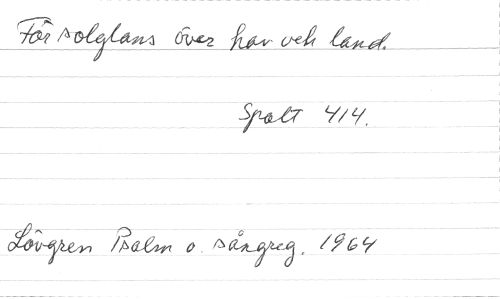 För solglans över hav och land.
Spalt 414.
Lövgren Psalm o. sångreg. 1964